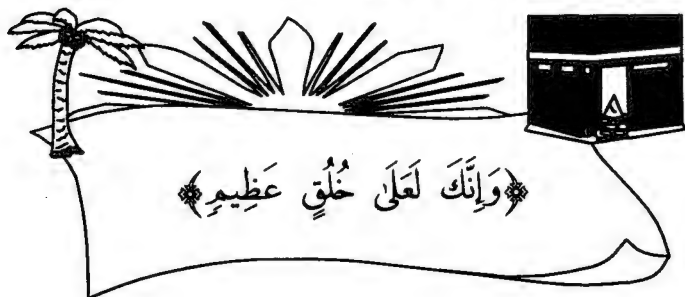 ﴿وَإِنَّكَ لَعَلَىٰ خُلُقٍ عَظِيمٍ﴾